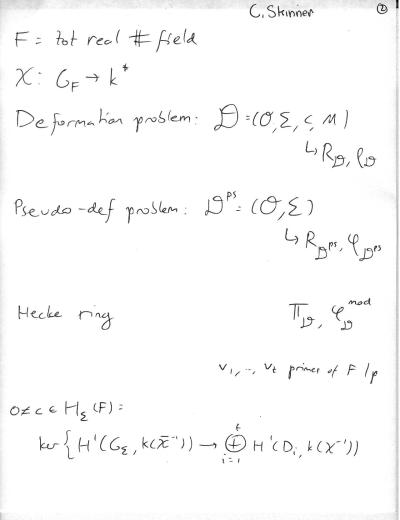 C. Skinner ②
F = tot real # field
χ: G_F → k^*
Deformation problem: 𝒟 = (O, Σ, c, M)
↳ R_𝒟, ρ_𝒟
Pseudo-def problem: 𝒟^ps = (O, Σ)
↳ R_𝒟^ps, φ_𝒟^ps
Hecke ring 𝕋_𝒟, φ_𝒟^mod
v_1, .., v_t primes of F |p
0 ≠ c ∈ H_Σ(F) =
ker { H^1(G_Σ, k(χ^-1)) → ⊕_{i=1}^t H^1(D_i, k(χ^-1))